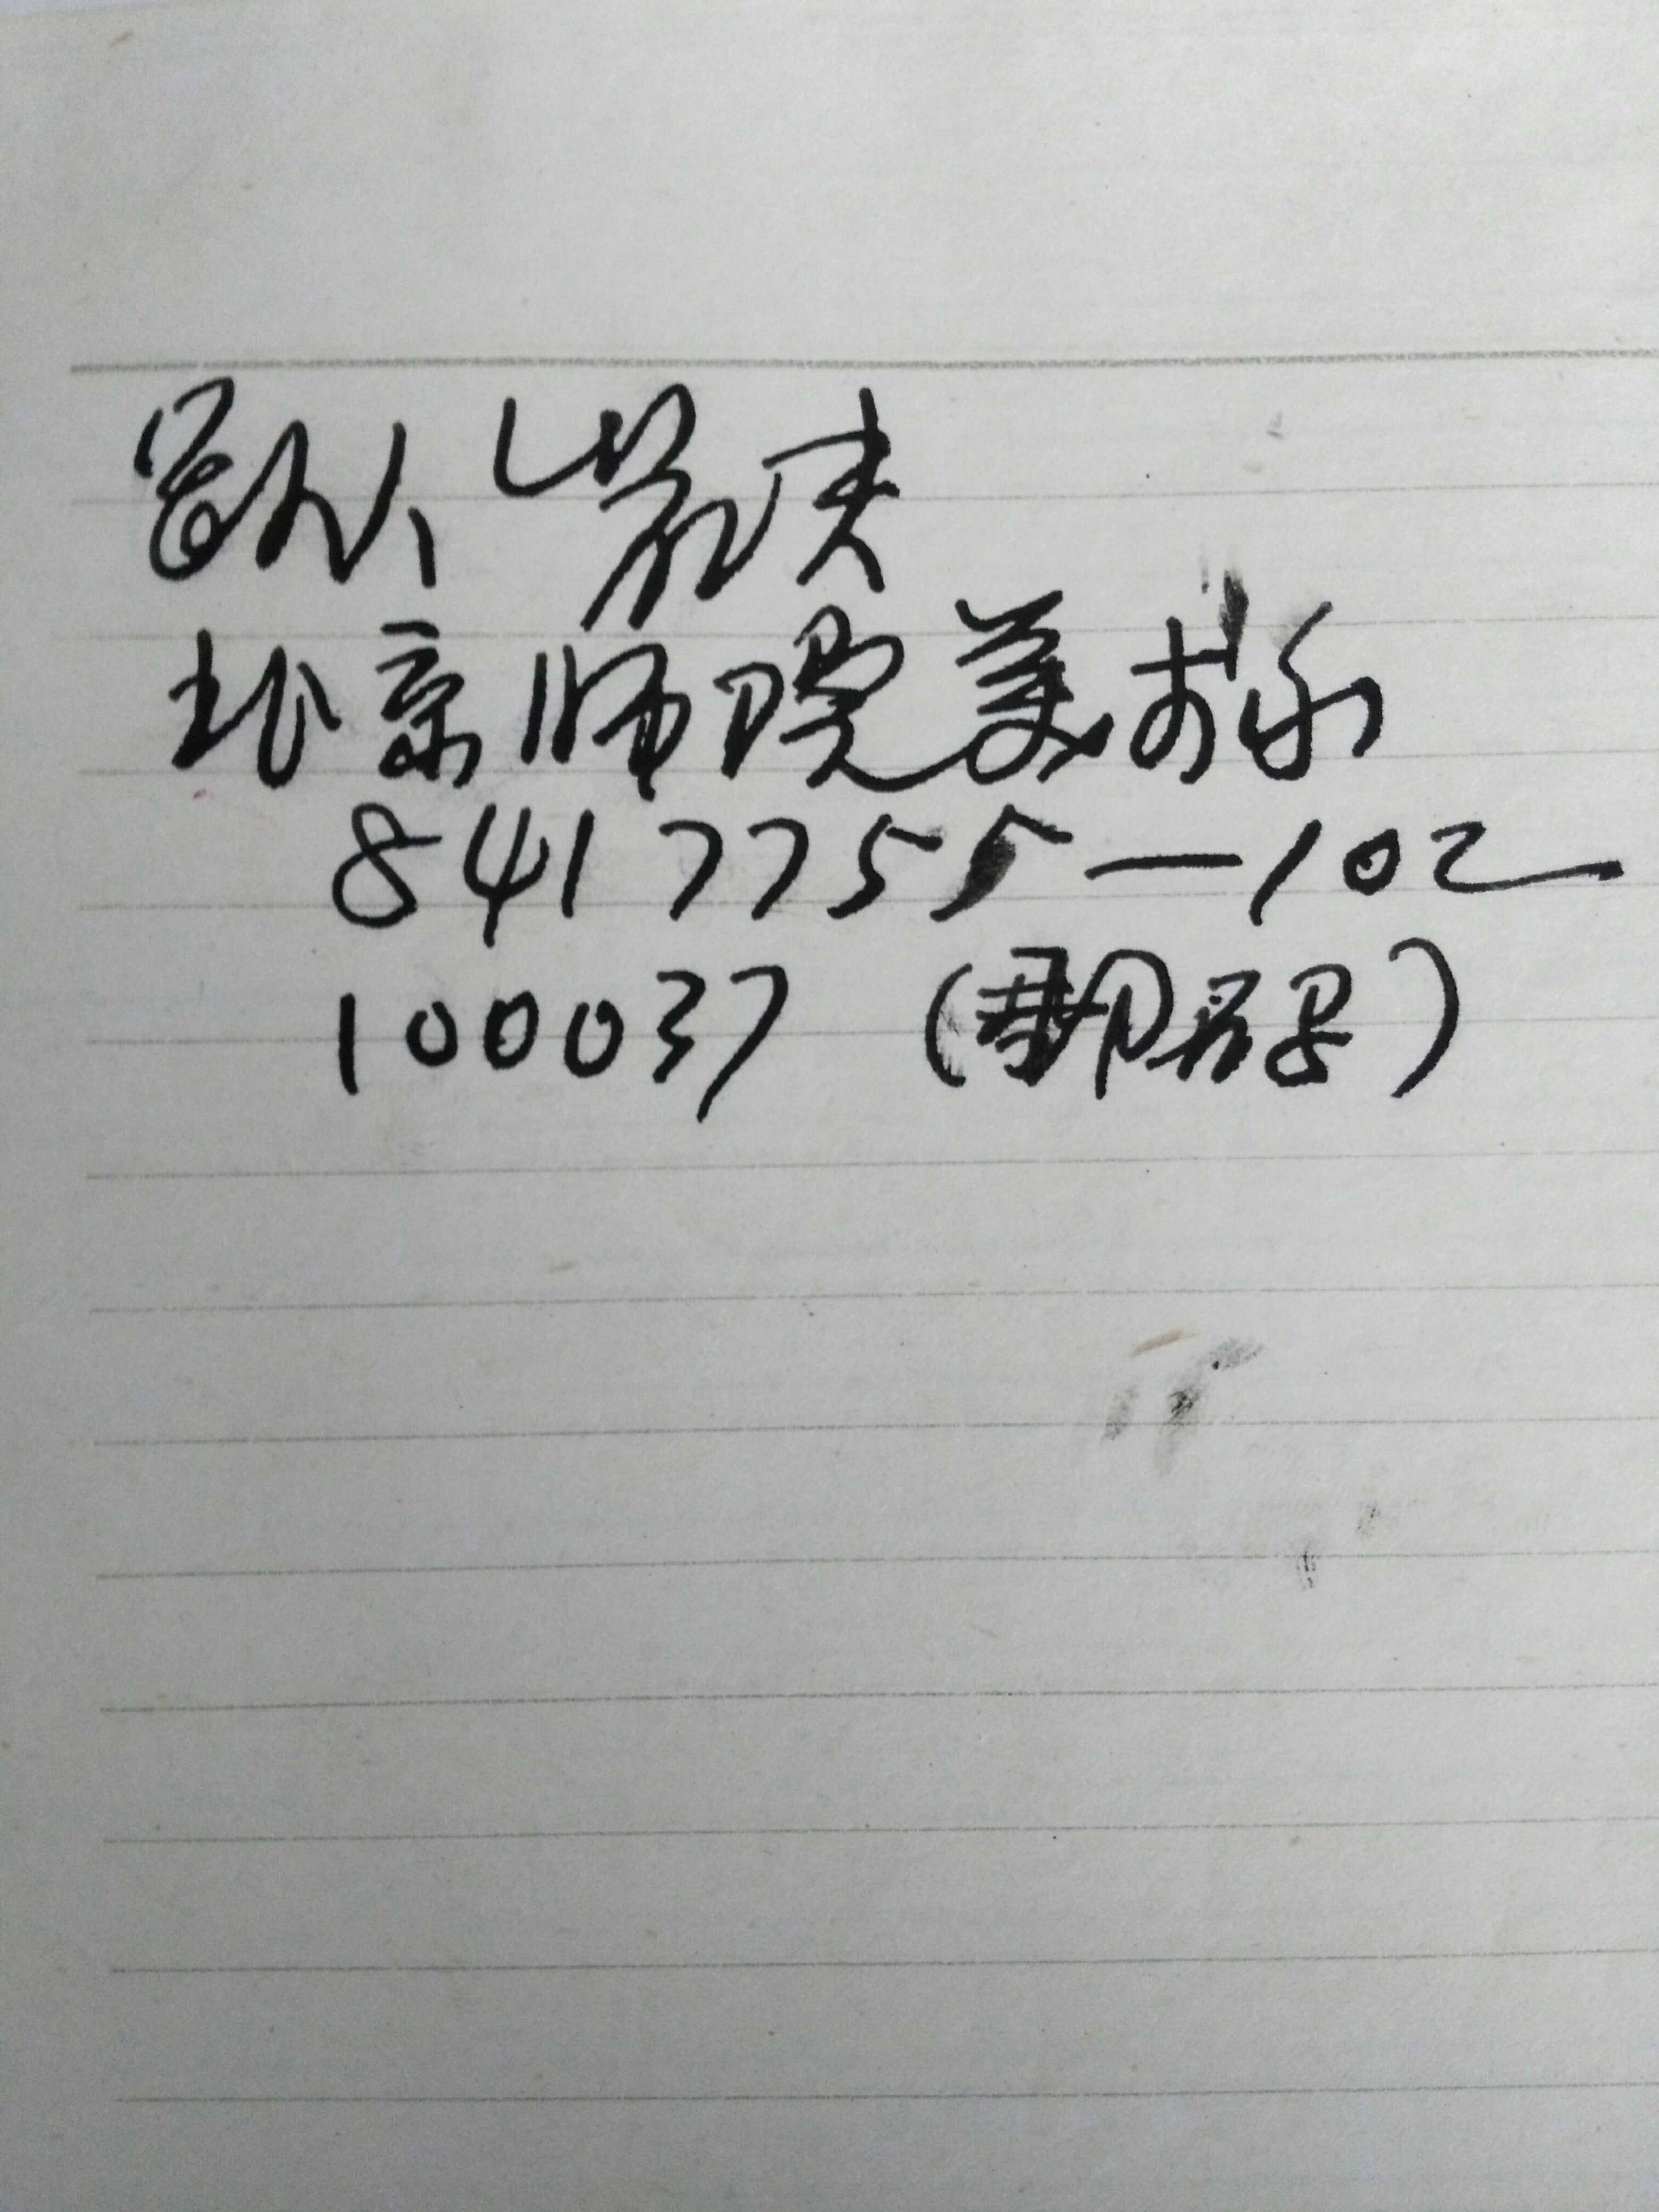 北京师院美术系
8417755—102
100037 (邮码)